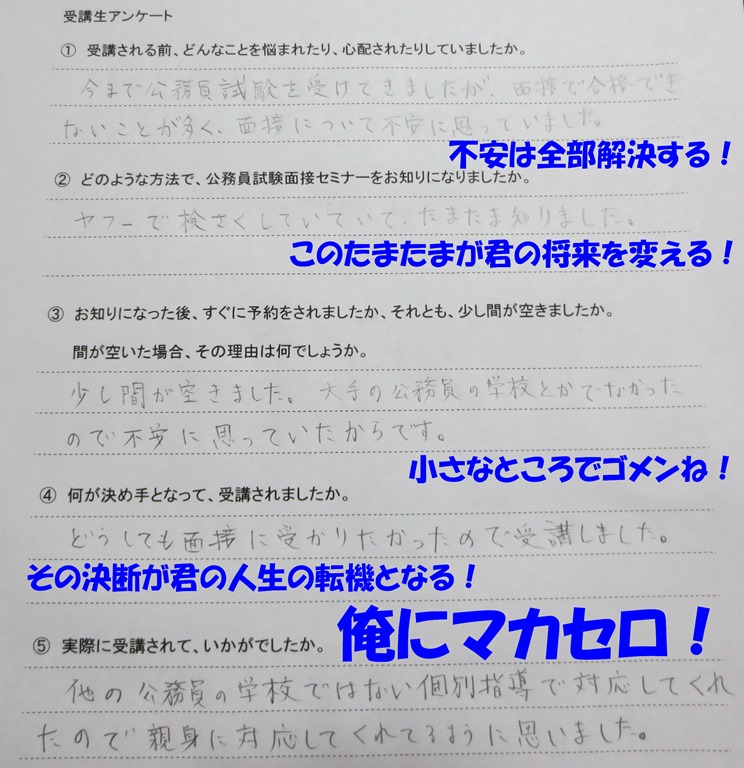 受講生アンケート
① 受講される前、どんなことを悩まれたり、心配されたりしていましたか。
今まで公務員試験を受けてきましたが、面接で合格でき
ないことが多く、面接について不安に思っていました。
不安は全部解決する！
② どのような方法で、公務員試験面接セミナーをお知りになりましたか。
ヤフーで検さくしていていて、たまたま知りました。
このたまたまが君の将来を変える！
③ お知りになった後、すぐに予約をされましたか、それとも、少し間が空きましたか。
間が空いた場合、その理由は何でしょうか。
少し間が空きました。大手の公務員の学校とかでなかった
ので不安に思っていたからです。
小さなところでゴメンね！
④ 何が決め手となって、受講されましたか。
どうしても面接に受かりたかったので受講しました。
その決断が君の人生の転機となる！
⑤ 実際に受講されて、いかがでしたか。
俺にマカセロ！
他の公務員の学校ではない個別指導で対応してくれ
たので親身に対応してくれてるように思いました。